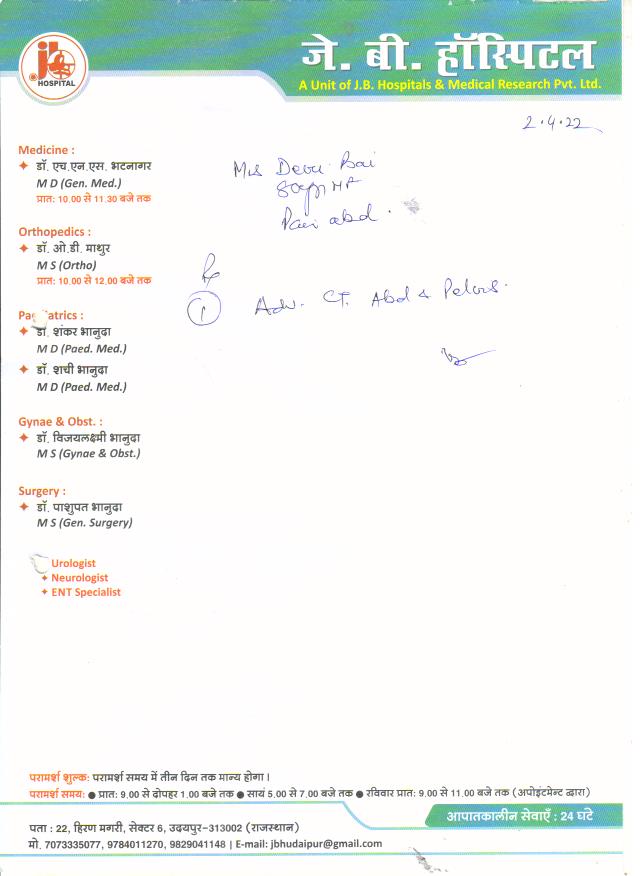 जे. बी. हॉस्पिटल
jb
HOSPITAL
A Unit of J.B. Hospitals & Medical Research Pvt. Ltd.
2.4.22
Medicine :
डॉ. एच.एन.एस. भटनागर
M D (Gen. Med.)
प्रात: 10.00 से 11.30 बजे तक
Mrs Devu Bai
80
Pain abd.
Orthopedics :
डॉ. ओ.डी. माथुर
M S (Ortho)
प्रात: 10.00 से 12.00 बजे तक
Rx
1 Adv. CT. Abd & Pelvis.
Paediatrics :
डॉ. शंकर भानुदा
M D (Paed. Med.)
डॉ. शची भानुदा
M D (Paed. Med.)
Gynae & Obst. :
डॉ. विजयलक्ष्मी भानुदा
M S (Gynae & Obst.)
Surgery :
डॉ. पाशुपत भानुदा
M S (Gen. Surgery)
Urologist
Neurologist
ENT Specialist
परामर्श शुल्क: परामर्श समय में तीन दिन तक मान्य होगा ।
परामर्श समय: ● प्रात: 9.00 से दोपहर 1.00 बजे तक ● सायं 5.00 से 7.00 बजे तक ● रविवार प्रात: 9.00 से 11.00 बजे तक (अपोइंटमेन्ट द्वारा)
आपातकालीन सेवाएँ : 24 घंटे
पता : 22, हिरण मगरी, सेक्टर 6, उदयपुर-313002 (राजस्थान)
मो. 7073335077, 9784011270, 9829041148 | E-mail: jbhudaipur@gmail.com